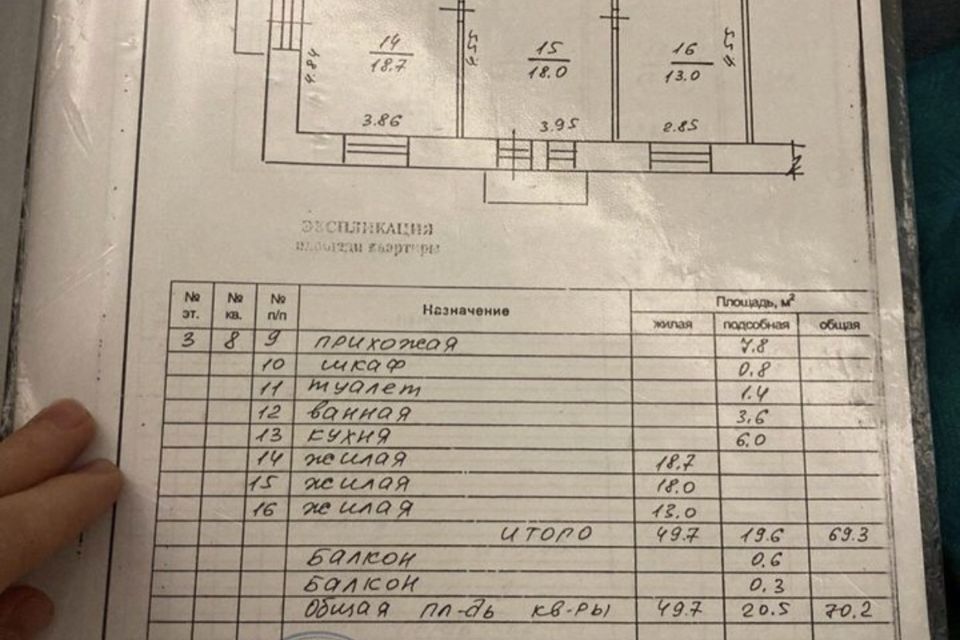 14
18.7
4.84
3.86
15
18.0
3.95
16
13.0
2.85
ЭКСПЛИКАЦИЯ
площади квартиры
№ эт. № кв. № п/п Назначение Площадь, м²
жилая подсобная общая
3 8 9 прихожая 7.8
10 шкаф 0.8
11 туалет 1.4
12 ванная 3.6
13 кухня 6.0
14 жилая 18.7
15 жилая 18.0
16 жилая 13.0
итого 49.7 19.6 69.3
Балкон 0.6
Балкон 0.3
Общая пл-дь кв-ры 49.7 20.5 70.2